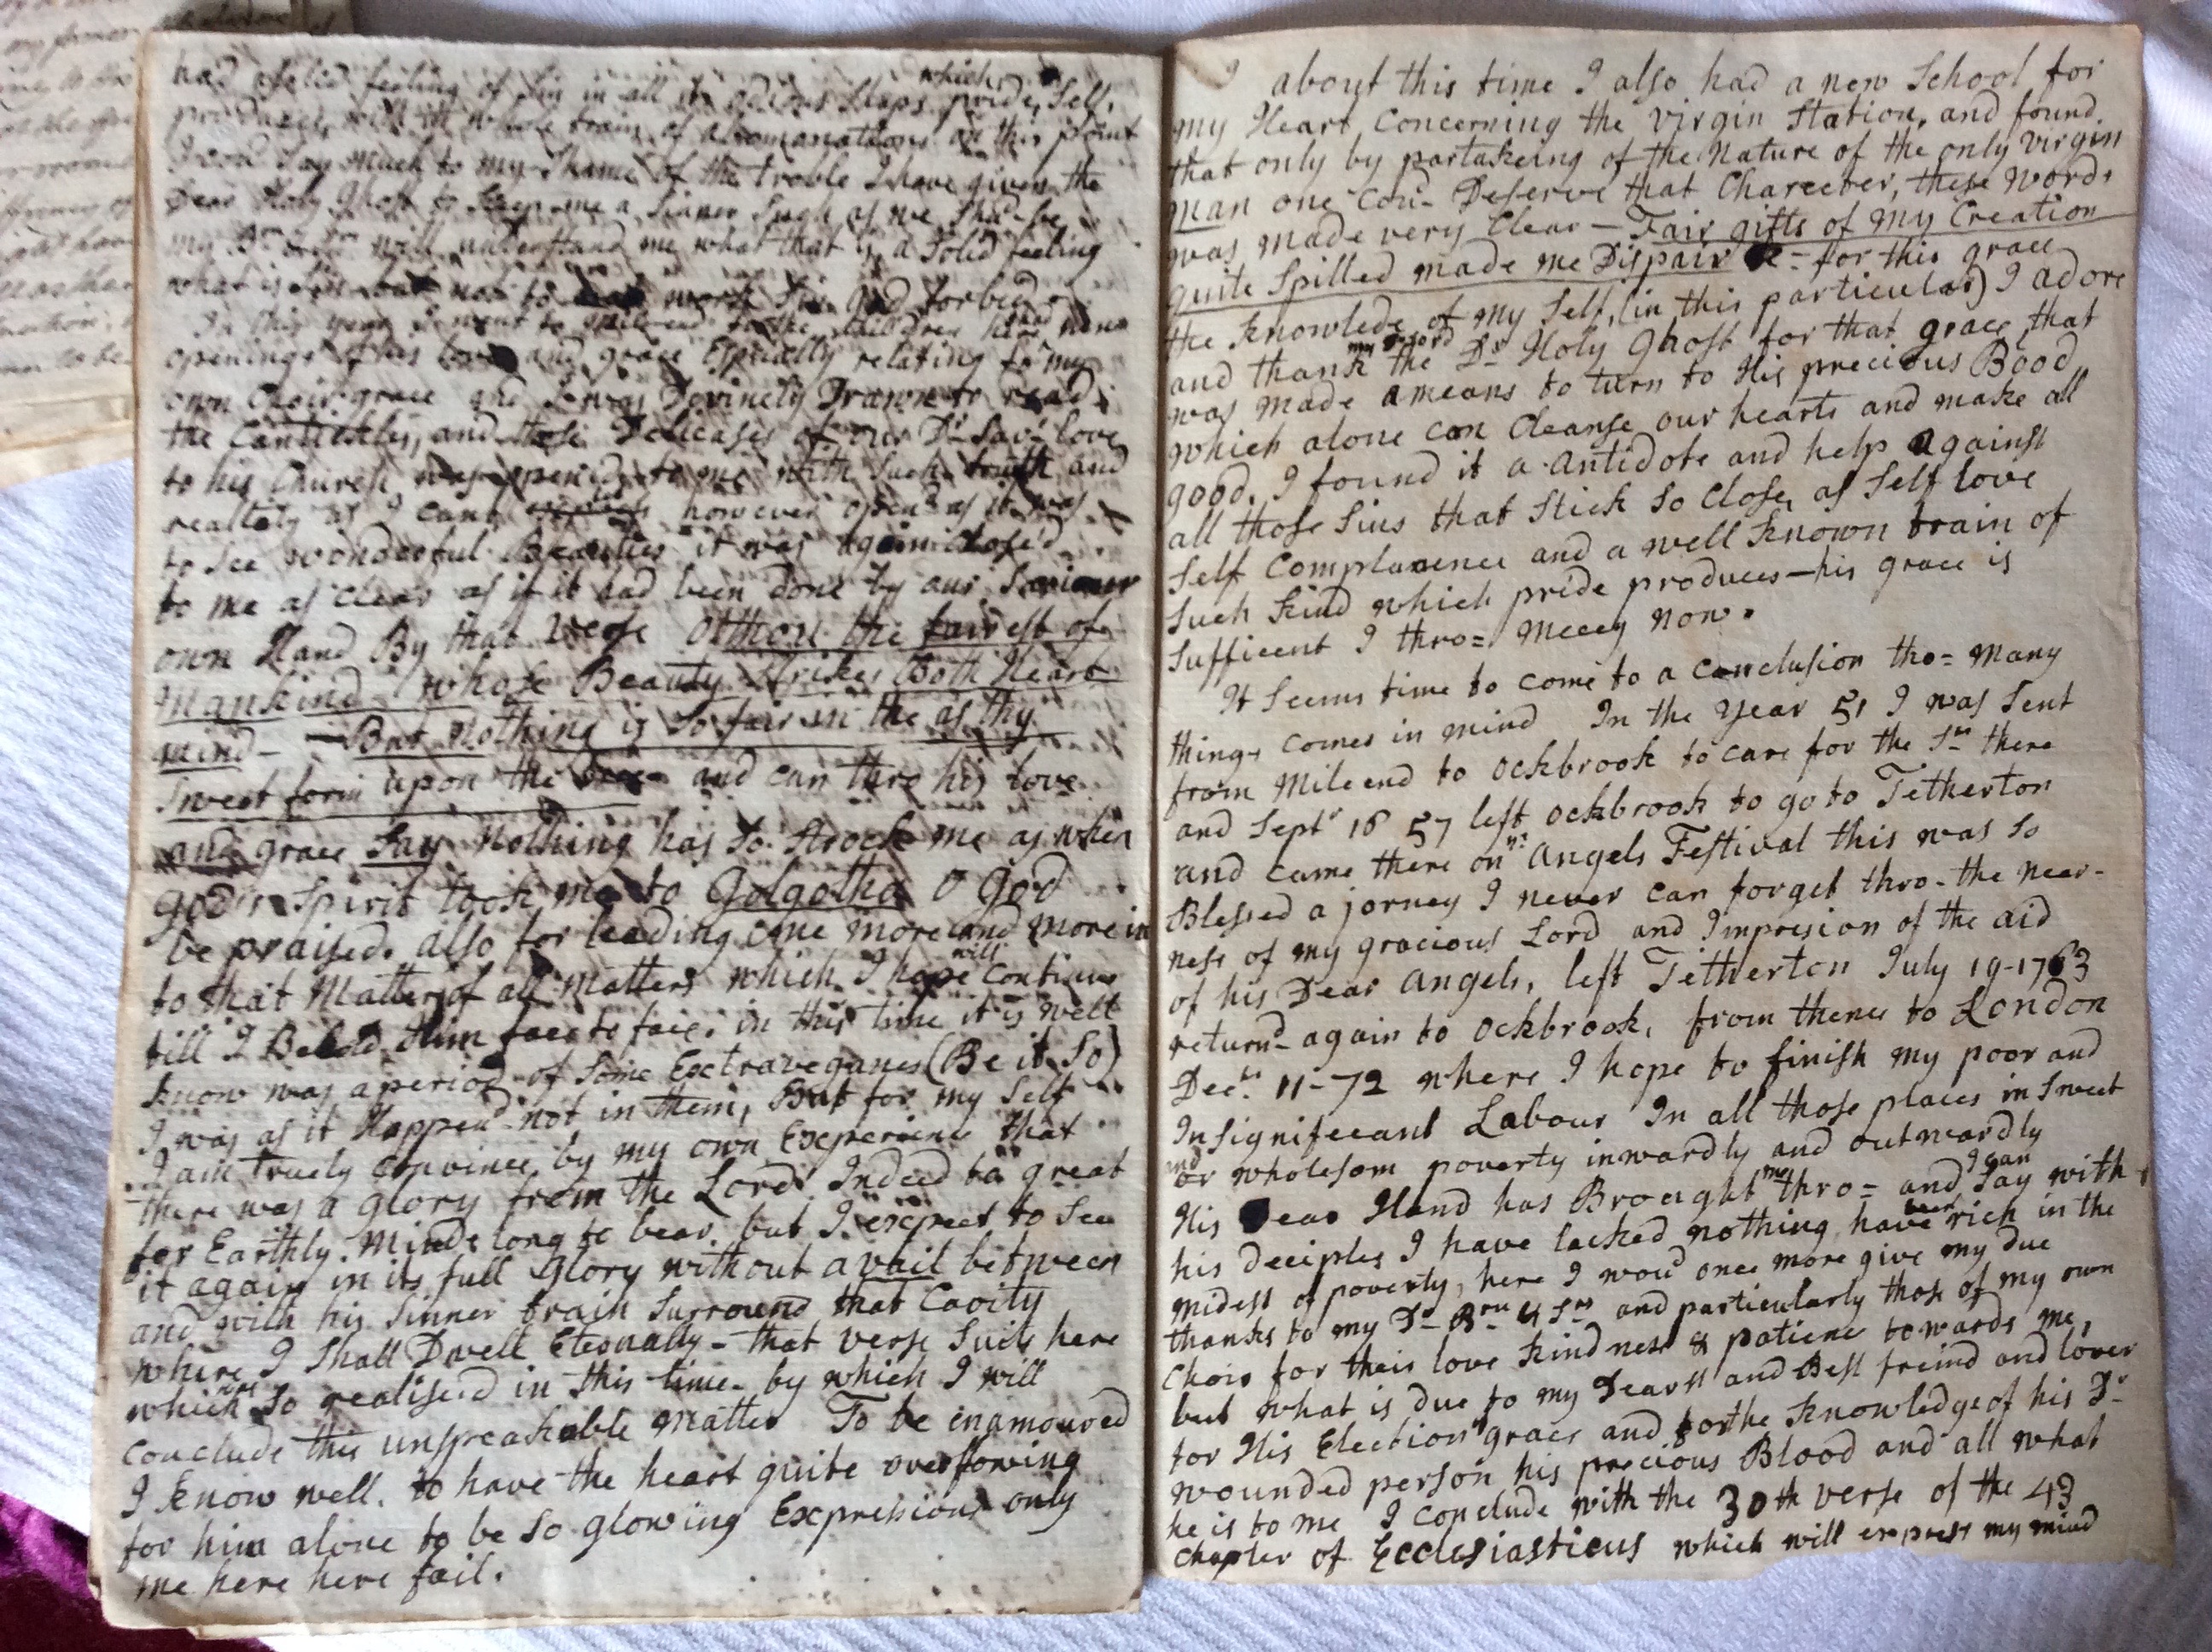 had a solid feeling of Sin in all its odious Shaps which pride, Self,
produces, with the whole train of abomanations on this point
I coud Say much to my Shame of the troble I have given the
Dear Holy Ghost to keep me a Sinner Such as we Shd be
my Brn Srn will understand me what that is, a Solid feeling
what is Sin but not to work Sin god forbid
In this year I went to Mile end to the Children had new
openings of his love and grace Espicially relating to my
own Choir grace and I was Divinely Drawn to read
the Canticles, and those Delicases of our Dr Savrs love
to his Church was opened to me with Such truth and
reallety as I cant however opend as it was
to See wonderful Beauties it was again closed
to me as clear as if it had been done by our Saviour
own Hand By that verse O thou the fairest of
Mankind whose Beauty Strikes Both Heart
mind — But nothing is So fair in the as thy
Sweet form upon the and can thro his love
and grace Say nothing has So Strock me as when
god's Spirit took me to Golgotha O God
be praised. also for leading me more and more in
to that Matter of all Matters which I hope will continue
till I Behold Him face to face. in this time it is well
know was a period of Some Extraveganes (Be it So)
I was as it Happen'd not in them, But for my Self
I am truely convince by my own Experience that
there was a glory from the Lord Indeed to great
for Earthly Minds long to bear but I expect to See
it again in its full Glory without a vail between
and with his Sinner train Surround that Cavity
where I Shall Dwell Eternally - that verse Suits here
which was So realised in this time by which I will
conclude this unspreakable Matter To be inamoured
I know well. to have the heart quite overflowing
for him alone to be So glowing Expresions only
me here here fail.
about this time I also had a new School for
my Heart Concerning the virgin Station, and found
that only by partakeing of the Nature of the only virgin
Man one Cou'd Deserve that Charecter, these words
was made very Clear — Fair gifts of my Creation
quite Spilled made me Dispair for this grace
the knowlede of my Self, (in this particular) I adore
my Lord
and thank the Dr Holy Ghost for that grace that
was made a means to turn to His precious Bood
which alone can Cleanse our hearts and make all
good. I found it a Antidote and help against
all those Sins that Stick So Close, as Self love
Self Complaxence and a well known train of
Such kind which pride produces — his grace is
Sufficent I thro= Mecey now.
It Seems time to come to a Conclusion tho= many
things comes in mind In the Year 51 I was Sent
from Mile end to Ockbrook to care for the Srs there
and Septr 16 57 left Ockbrook to go to Tetherton
and came there on ye Angels Festival this was So
Blessed a jorney I never can forget thro- the near-
ness of my gracious Lord and Impresion of the aid
of his Dear Angels, left Tetherton July 19-1763
return'd again to Ockbrook, from thence to London
Decbr 11-72 where I hope to finish my poor and
Insignifecant Labour In all those places in Sweet
and
or wholesom poverty inwardly and outwardly
His Dear Hand has Brought me thro= and I can Say with
his deciples I have lacked nothing, have been rich in the
midest of poverty, here I wou'd once more give my due
thanks to my Dr Brn & Srs and particularly those of my own
Choir for their love kindness & patience towards me,
but what is due to my Dearst and Best freind and lover
for His Election grace and for the knowledge of his Dr
wounded person his precious Blood and all what
he is to me I conclude with the 30th verse of the 43
Chapter of Ecclesiasticus which will express my mind